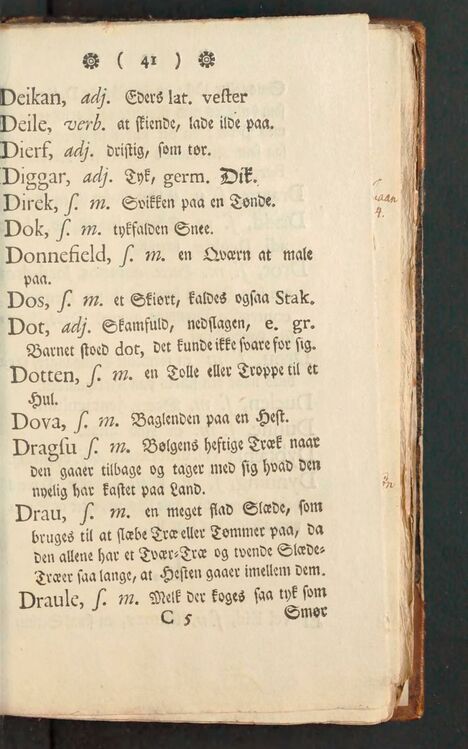 ( 41 )
Deikan, adj. Eders lat. vester
Deile, verb. at skiende, lade ilde paa.
Dierf, adj. dristig, som tør.
Diggar, adj. Tyk, germ. Dik.
Direk, s. m. Svikken paa en Tønde.
Dok, s. m. tykfalden Snee.
Donnefield, s. m. en Qværn at male
paa.
Dos, s. m. et Skiørt, kaldes ogsaa Stak.
Dot, adj. Skamfuld, nedslagen, e. gr.
Barnet stoed dot, det kunde ikke svare for sig.
Dotten, s. m. en Tolle eller Troppe til et
Hul.
Dova, s. m. Baglenden paa en Hest.
Dragsu s. m. Bølgens heftige Træk naar
den gaaer tilbage og tager med sig hvad den
nyelig har kastet paa Land.
Drau, s. m. en meget flad Slæde, som
bruges til at slæbe Træ eller Tømmer paa, da
den allene har et Tvær-Træ og tvende Slæde-
Træer saa lange, at Hesten gaaer imellem dem.
Draule, s. m. Melk der koges saa tyk som
C 5 Smør